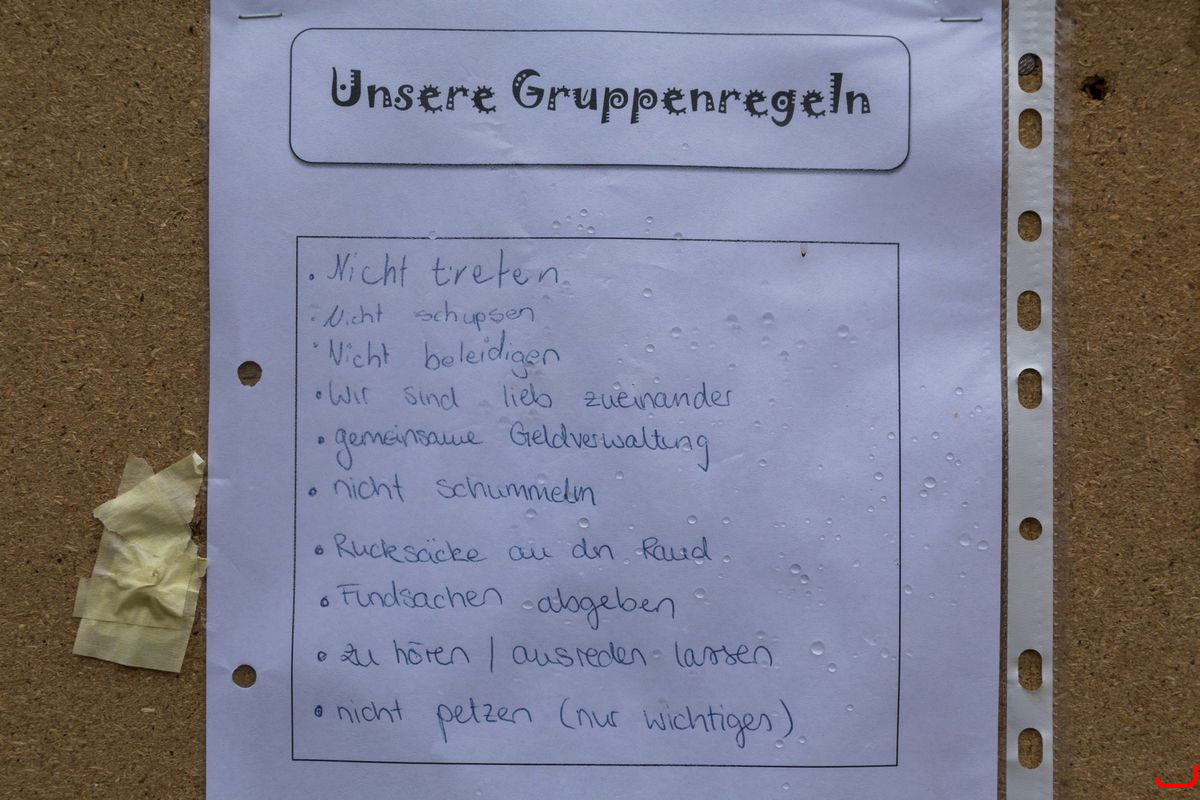 Unsere Gruppenregeln
• Nicht treten
• Nicht schupsen
• Nicht beleidigen
• Wir sind lieb zueinander
• gemeinsame Geldverwaltung
• nicht schummeln
• Rucksäcke an den Rand
• Fundsachen abgeben
• zu hören / ausreden lassen
• nicht petzen (nur wichtiges)